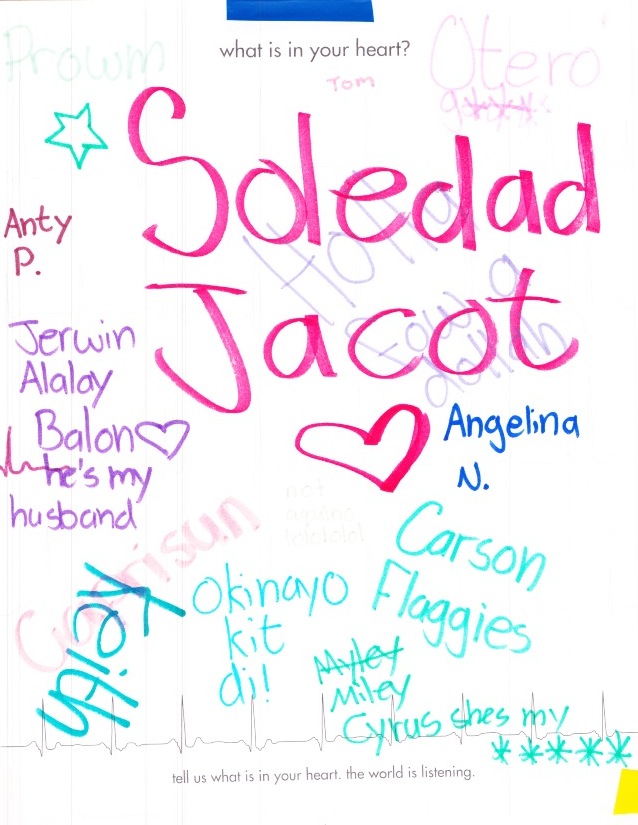 what is in your heart?
Prowm
Otero
Tom
Soledad
Jacot
Anty
P.
Holly
Jerwin
Alalay
Balon
he's my
husband
Angelina
N.
not
lolololol
Caprisun
Carson
Flaggies
Keith
Okinayo
kit
di!
Myley
Miley
Cyrus shes my
*****
tell us what is in your heart. the world is listening.